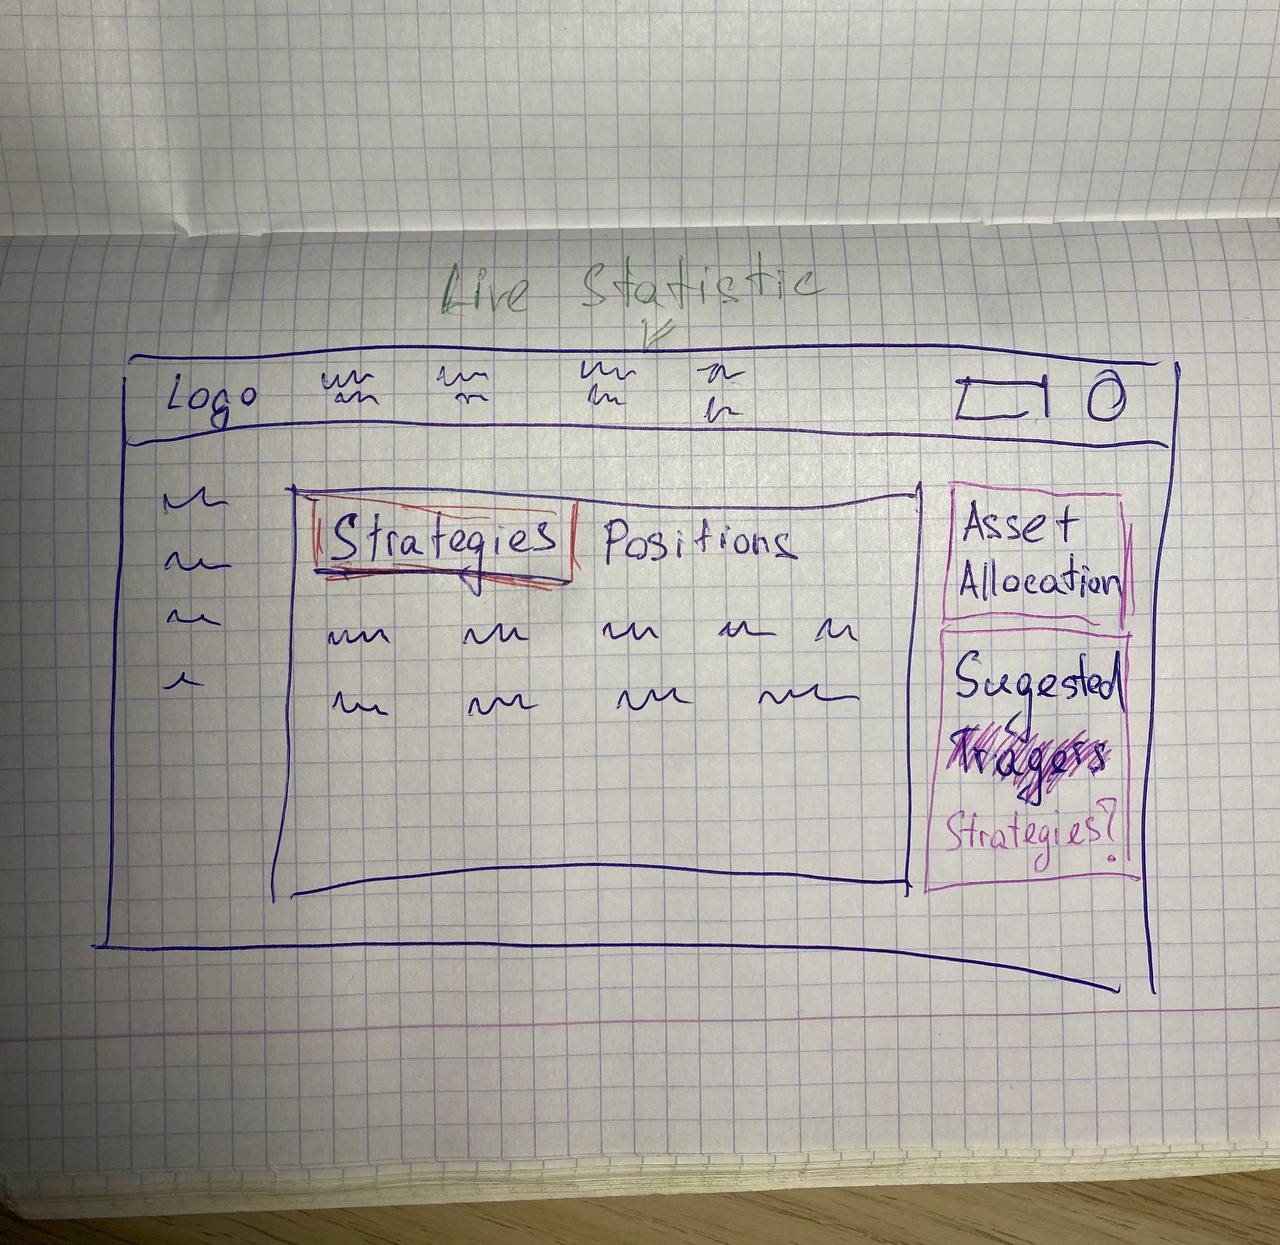 Live Statistic
Logo
Strategies Positions
Asset
Allocation
Sugested
Strategies?